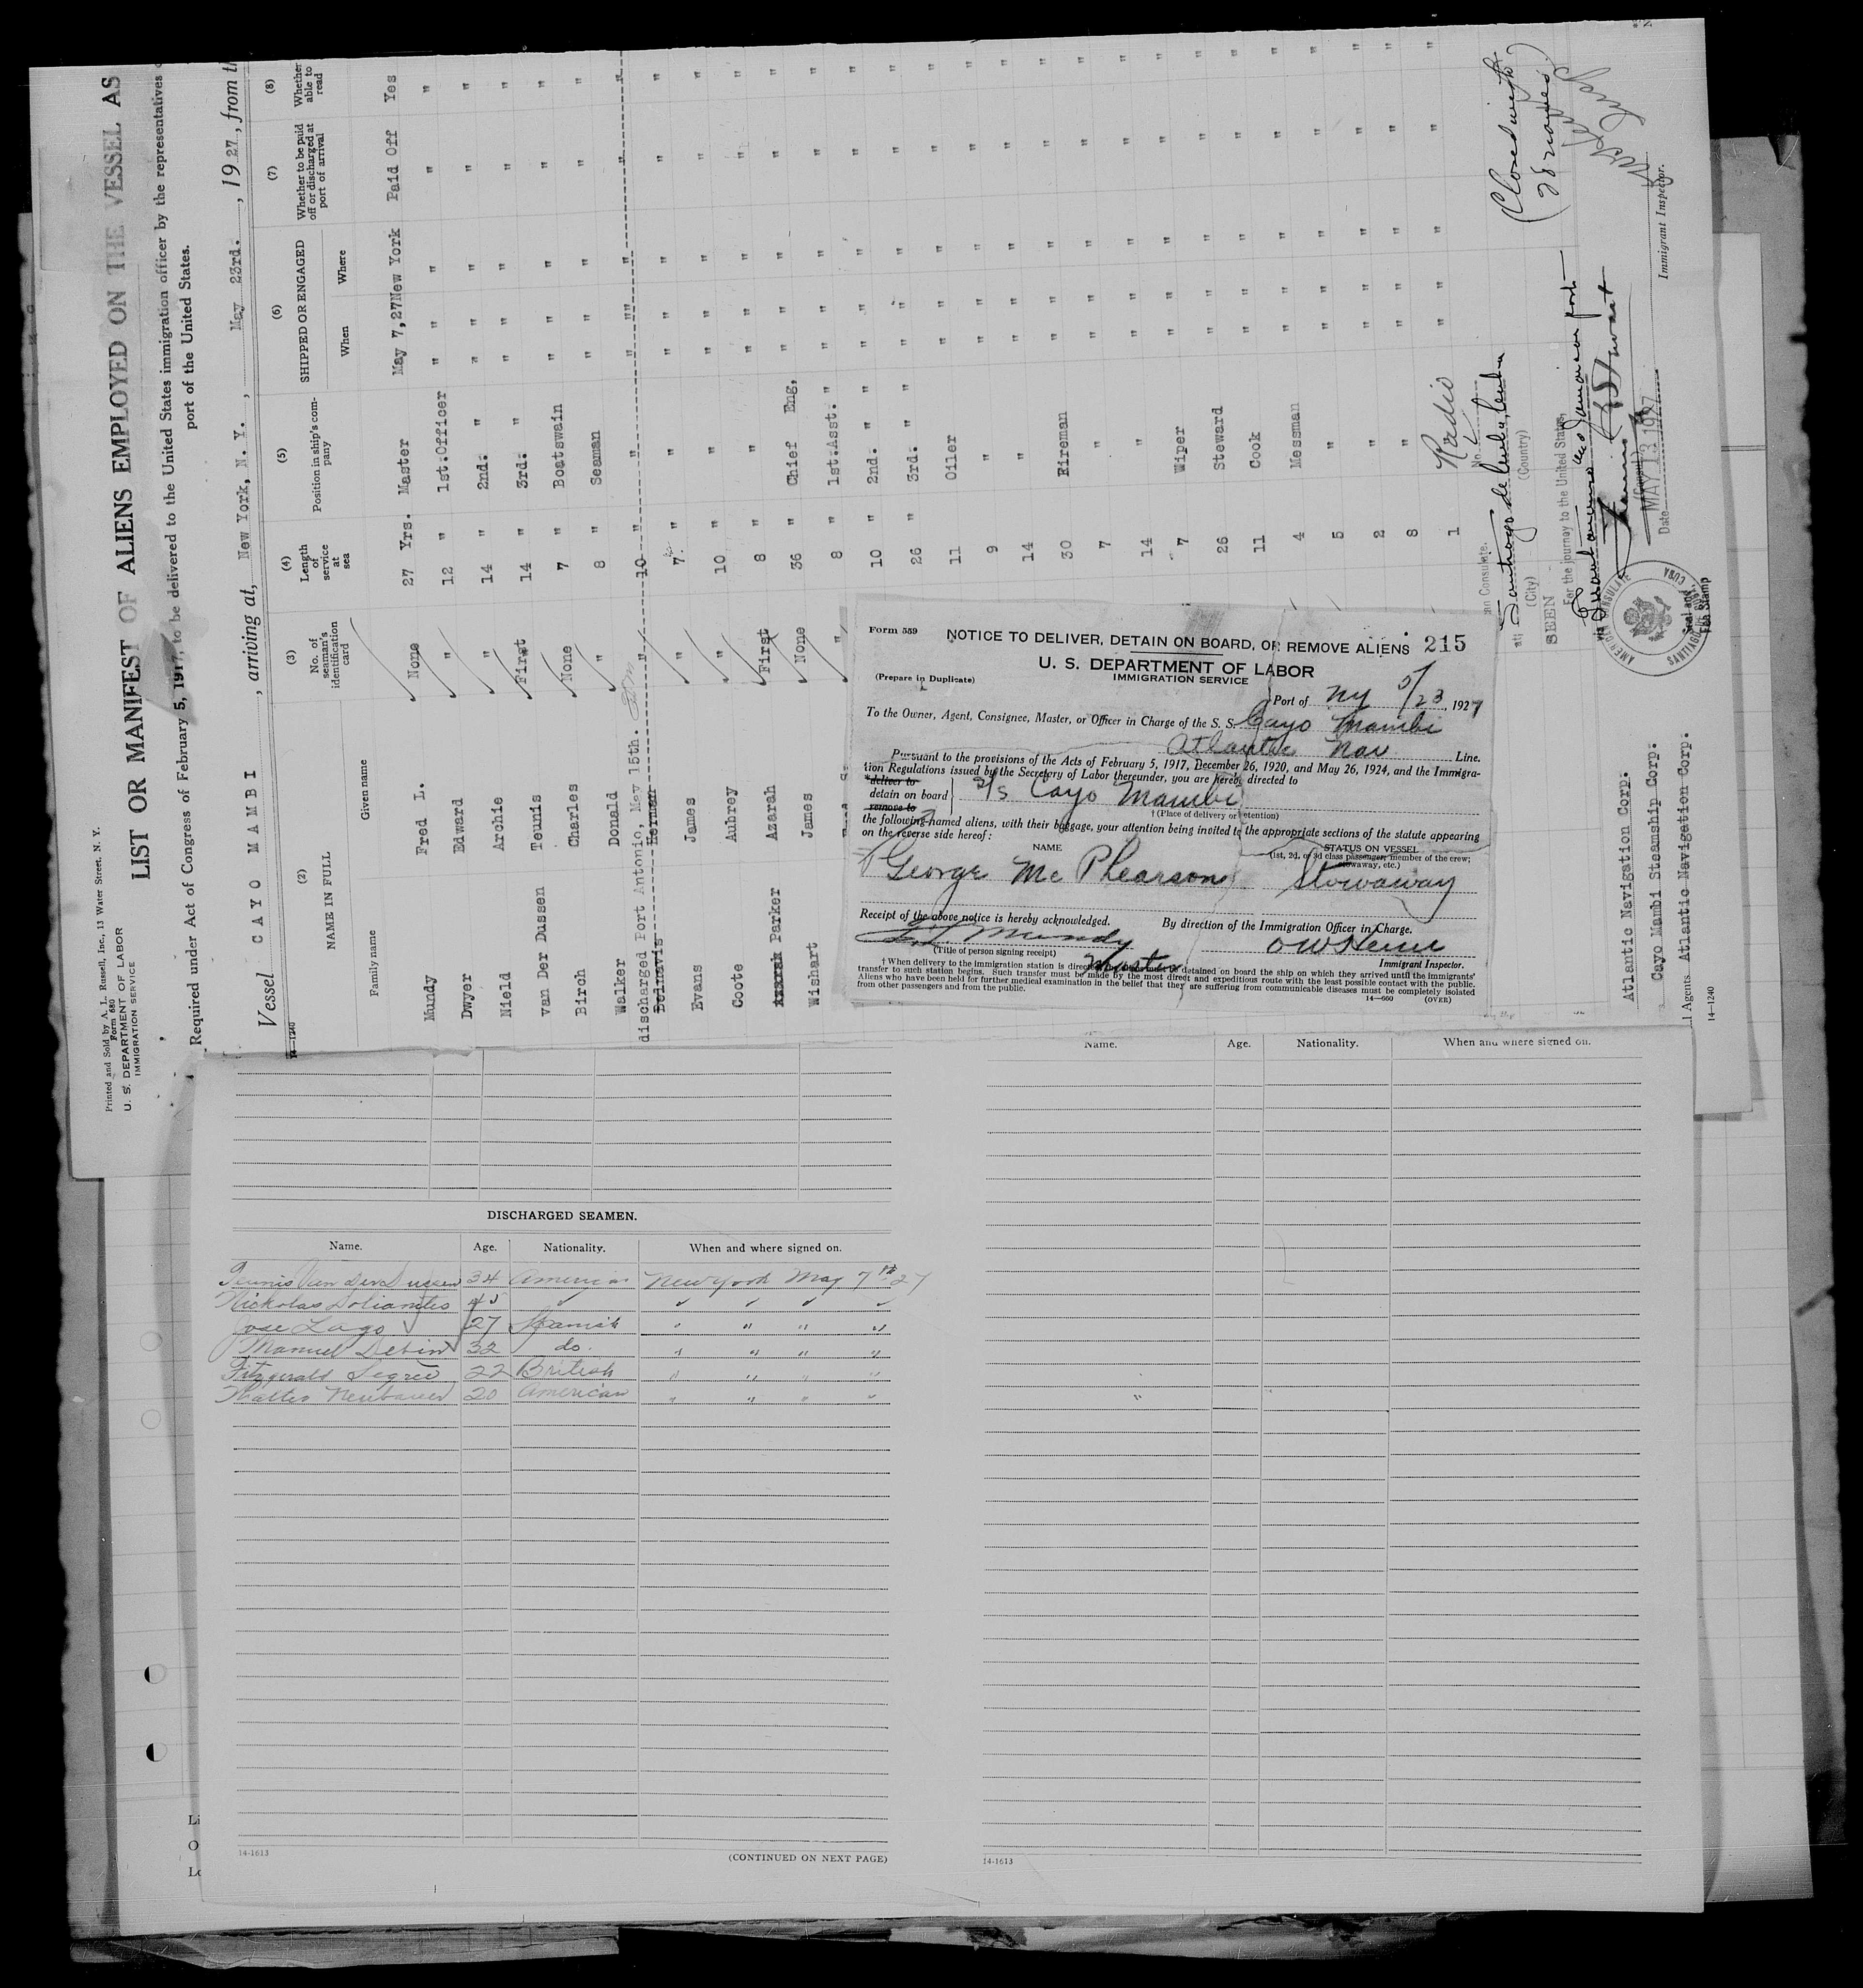 Printed and Sold by A. L. Russell, Inc., 13 Water Street, N. Y.
Form 689
U. S. DEPARTMENT OF LABOR
IMMIGRATION SERVICE
LIST OR MANIFEST OF ALIENS EMPLOYED ON THE VESSEL AS
Required under Act of Congress of February 5, 1917, to be delivered to the United States immigration officer by the representatives
port of the United States.
Vessel CAYO MAMBI , arriving at, New York, N. Y. , May 23rd. , 1927, from
14-1240
(2) (3) (4) (5) (6) (7) (8)
NAME IN FULL
Family name Given name
No. of seaman's identification card
Length of service at sea
Position in ship's company
SHIPPED OR ENGAGED
When Where
Whether to be paid off or discharged at port of arrival
Whether able to read
Mundy Fred L. None 27 Yrs. Master May 7,27 New York Paid Off Yes
Dwyer Edward " 12 " 1st.Officer " " " " "
Nield Archie " 14 " 2nd. " " " " " "
van Der Dussen Teunis First 14 " 3rd. " " " " " "
Birch Charles None 7 " Boatswain " " " " "
Walker Donald " 8 " Seaman " " " " "
discharged Port Antonio, May 15th.
Delnavis Herman " 10 " " " " " " "
Evans James " 7 " " " " " " "
Coote Aubrey " 10 " " " " " " "
Azarah Parker Azarah First 8 " " " " " " "
Wishart James None 36 " Chief Eng, " " " " "
" 8 " 1st.Asst. " " " " " "
10 " 2nd. " " " " " " "
26 " 3rd. " " " " " " "
11 Oiler " " " " "
9 " " " " " "
14 " " " " " "
30 Fireman " " " " "
7 " " " " " "
14 " " " " " "
7 Wiper " " " " "
26 Steward " " " " "
11 Cook " " " " "
4 Messman " " " " "
5 " " " " " "
2 " " " " " "
8 " " " " " "
1 Radio " " " " "
an Consulate. No.
at Santiago de Cuba, Cuba
(City) (Country)
SEEN
For the journey to the United States,
(Consul)
Date MAY 13 1927
AMERICAN CONSULATE SANTIAGO DE CUBA, CUBA
Seal and Fee Stamp
Immigrant Inspector.
Atlantic Navigation Corp.
Cayo Mambi Steamship Corp.
l Agents. Atlantic Navigation Corp.
14-1240
Form 559
NOTICE TO DELIVER, DETAIN ON BOARD, OR REMOVE ALIENS 215
U. S. DEPARTMENT OF LABOR
IMMIGRATION SERVICE
(Prepare in Duplicate)
Port of NY 5/23, 1927
To the Owner, Agent, Consignee, Master, or Officer in Charge of the S. S. Cayo Mambi
Atlantic Nav Line.
Pursuant to the provisions of the Acts of February 5, 1917, December 26, 1920, and May 26, 1924, and the Immigra-
tion Regulations issued by the Secretary of Labor thereunder, you are hereby directed to
deliver to
detain on board S/S Cayo Mambi
remove to
† (Place of delivery or detention)
the following-named aliens, with their baggage, your attention being invited to the appropriate sections of the statute appearing
on the reverse side hereof:
NAME STATUS ON VESSEL
(1st, 2d, or 3d class passenger, member of the crew;
stowaway, etc.)
George Mc Phearson Stowaway
Receipt of the above notice is hereby acknowledged. By direction of the Immigration Officer in Charge.
Mundy
(Title of person signing receipt)
Master Immigrant Inspector.
† When delivery to the immigration station is directed detained on board the ship on which they arrived until the immigrants'
transfer to such station begins. Such transfer must be made by the most direct and expeditious route with the least possible contact with the public.
Aliens who have been held for further medical examination in the belief that they are suffering from communicable diseases must be completely isolated
from other passengers and from the public.
14—660 (OVER)
DISCHARGED SEAMEN.
Name. Age. Nationality. When and where signed on.
Teunis Van Der Dussen 34 American New York May 7th 27
Nickolas
Jose Lago 27 Spanish " " " "
Manuel 32 do. " " " "
Fitzgerald Segree 22 British " " " "
Walter Neubauer 20 American " " " "
14-1613
(CONTINUED ON NEXT PAGE)
Name. Age. Nationality. When and where signed on.
14-1613